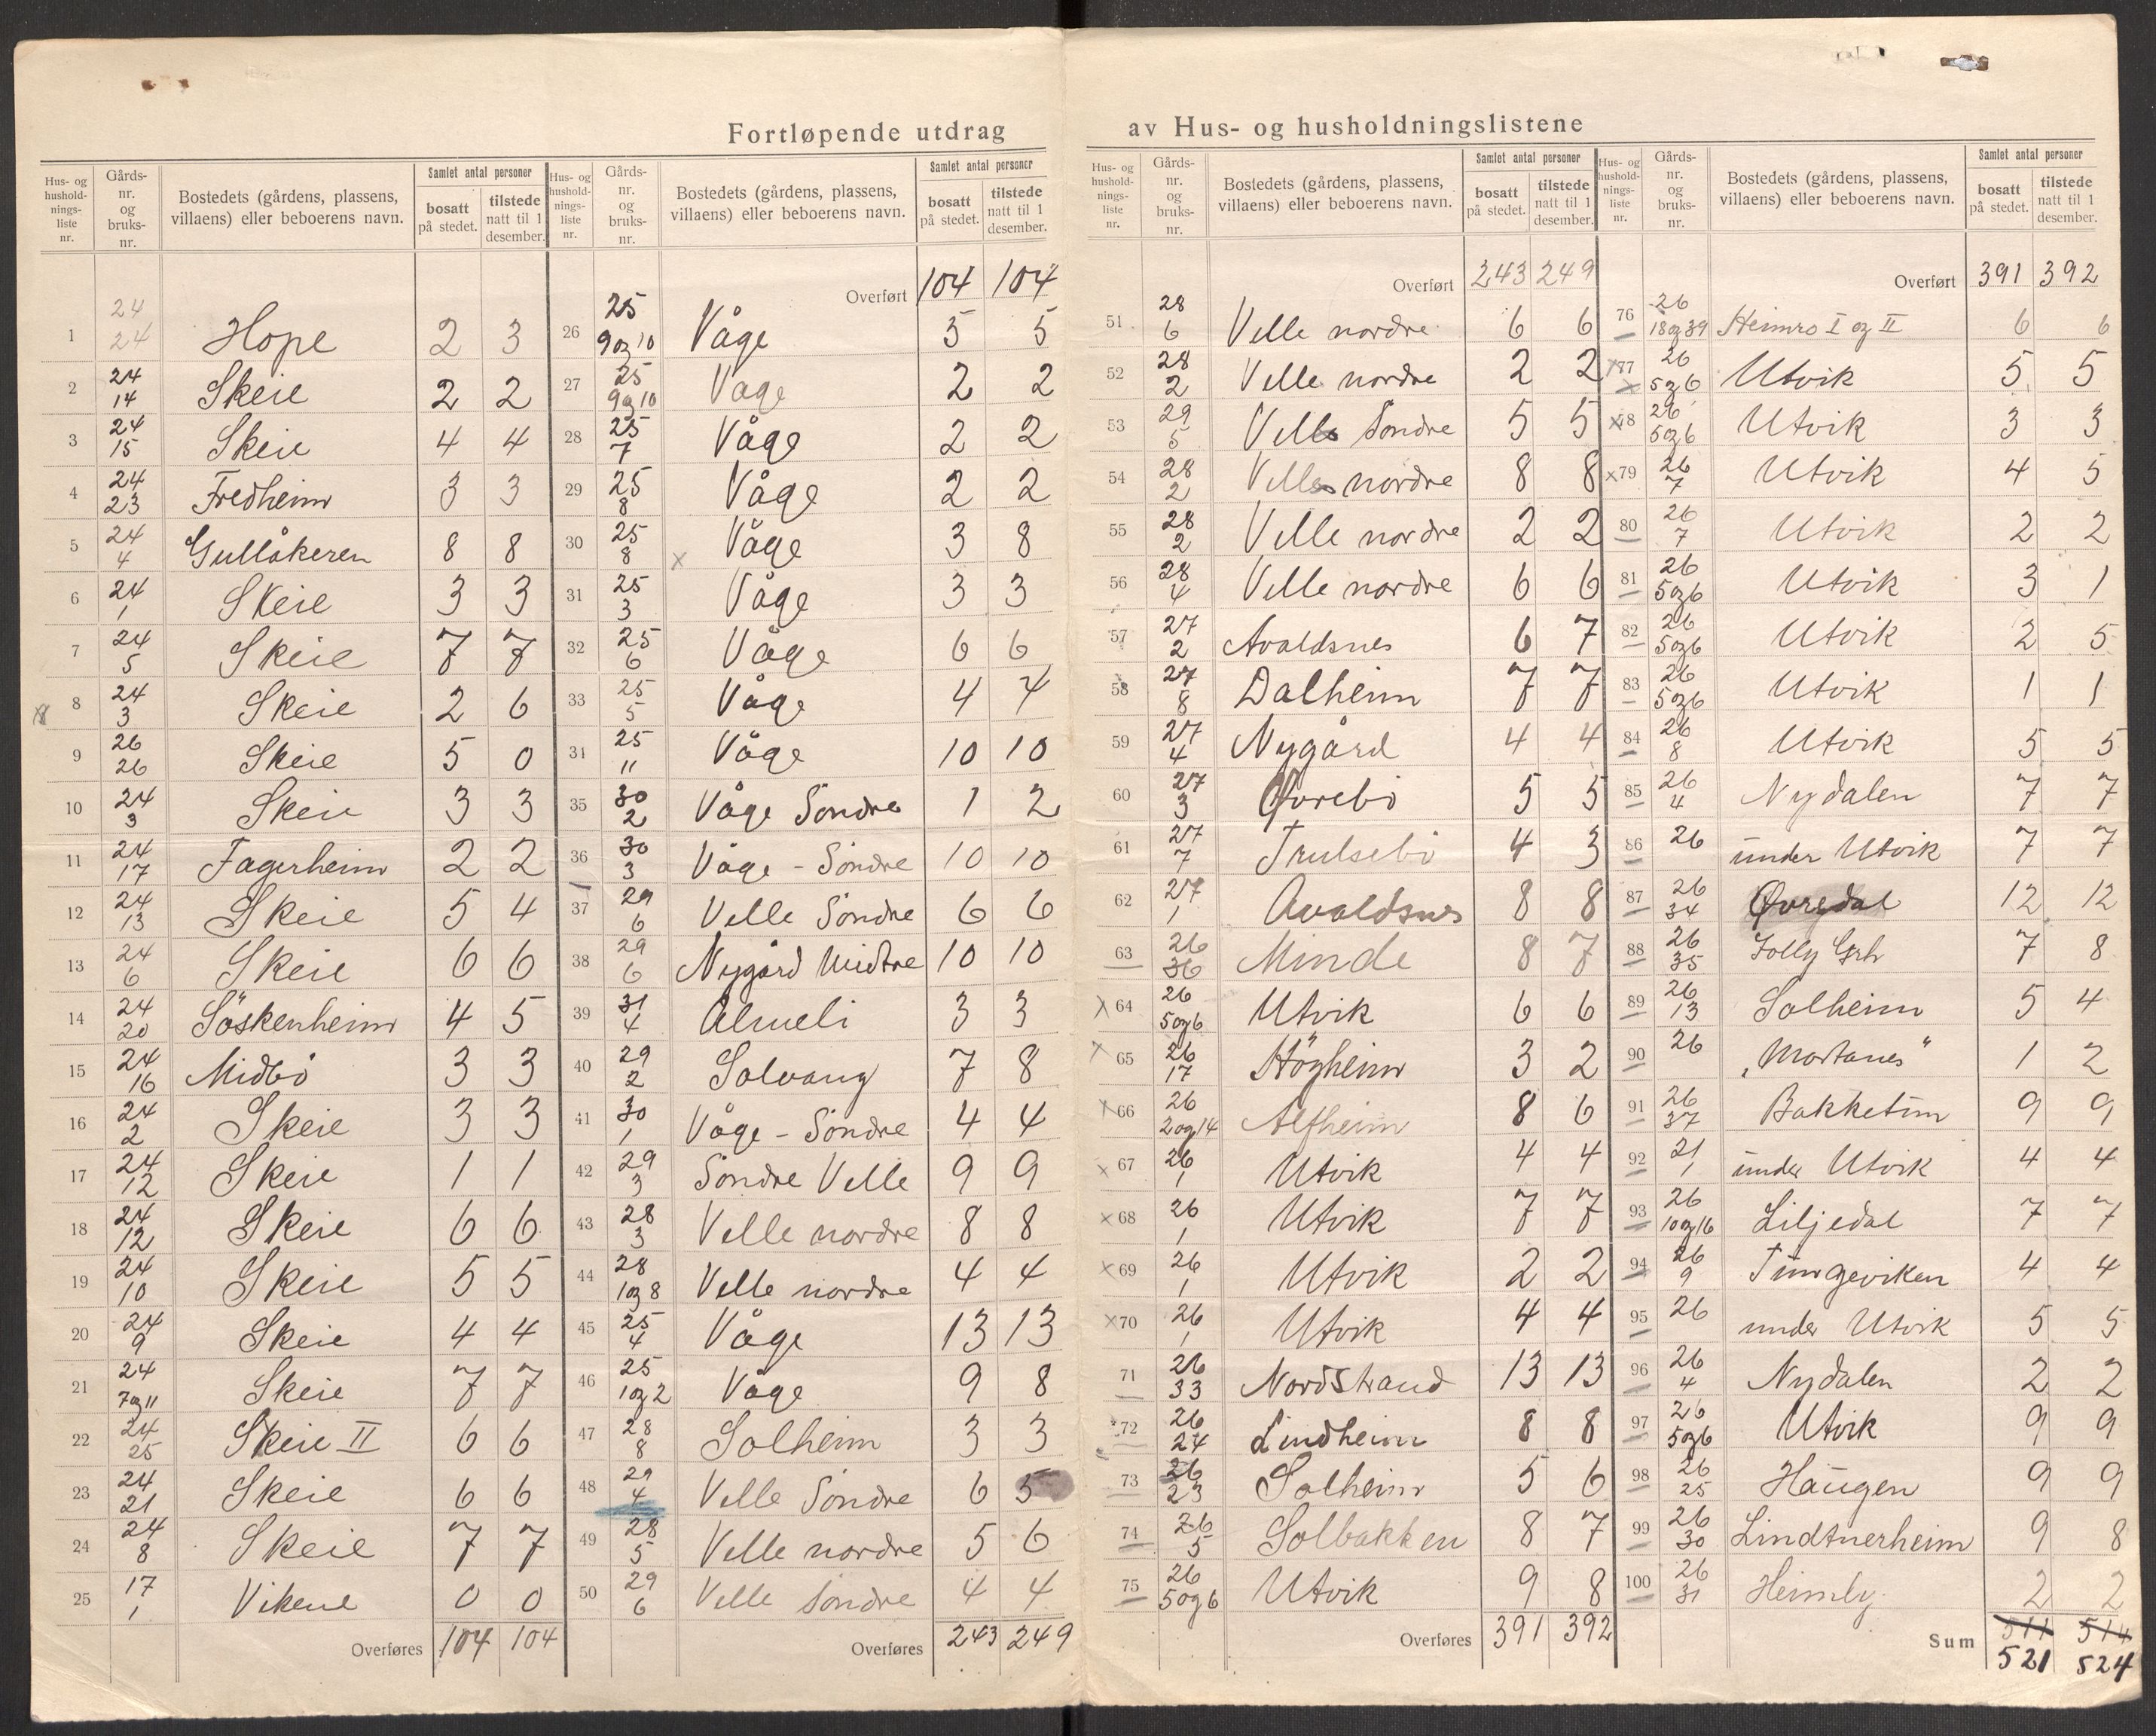 Fortløpende utdrag av Hus- og husholdningslistene
Hus- og hushold- nings- liste nr. | Gårds- nr. og bruks- nr. | Bostedets (gårdens, plassens, villaens) eller beboerens navn. | Samlet antal personer | bosatt på stedet. | tilstede natt til 1 desember.
1 | 24 24 | Hope | 2 | 3
2 | 24 14 | Skeie | 2 | 2
3 | 24 15 | Skeie | 4 | 4
4 | 24 23 | Fredheim | 3 | 3
5 | 24 4 | Gullåkeren | 8 | 8
6 | 24 1 | Skeie | 3 | 3
7 | 24 5 | Skeie | 7 | 7
8 | 24 3 | Skeie | 2 | 6
9 | 26 26 | Skeie | 5 | 0
10 | 24 3 | Skeie | 3 | 3
11 | 24 17 | Fagerheim | 2 | 2
12 | 24 13 | Skeie | 5 | 4
13 | 24 6 | Skeie | 6 | 6
14 | 24 20 | Söskenheim | 4 | 5
15 | 24 16 | Midbö | 3 | 3
16 | 24 2 | Skeie | 3 | 3
17 | 24 12 | Skeie | 1 | 1
18 | 24 12 | Skeie | 6 | 6
19 | 24 10 | Skeie | 5 | 5
20 | 24 9 | Skeie | 4 | 4
21 | 24 7og11 | Skeie | 7 | 7
22 | 24 25 | Skeie II | 6 | 6
23 | 24 21 | Skeie | 6 | 6
24 | 24 8 | Skeie | 7 | 7
25 | 17 1 | Vikene | 0 | 0
Overføres | 104 | 104
Hus- og hushold- nings- liste nr. | Gårds- nr. og bruks- nr. | Bostedets (gårdens, plassens, villaens) eller beboerens navn. | Samlet antal personer | bosatt på stedet. | tilstede natt til 1 desember.
Overført | 104 | 104
26 | 25 9og10 | Våge | 5 | 5
27 | 25 9og10 | Våge | 2 | 2
28 | 25 7 | Våge | 2 | 2
29 | 25 8 | Våge | 2 | 2
30 | 25 8 | x Våge | 3 | 8
31 | 25 3 | Våge | 3 | 3
32 | 25 6 | Våge | 6 | 6
33 | 25 5 | Våge | 4 | 4
34 | 25 11 | Våge | 10 | 10
35 | 30 2 | Våge Söndre | 1 | 2
36 | 30 3 | Våge - Söndre | 10 | 10
37 | 29 6 | Velle Söndre | 6 | 6
38 | 29 6 | Nygård Midtre | 10 | 10
39 | 31 4 | Almeli | 3 | 3
40 | 29 2 | Solvang | 7 | 8
41 | 30 1 | Våge - Söndre | 4 | 4
42 | 29 3 | Söndre Velle | 9 | 9
43 | 28 3 | Velle nordre | 8 | 8
44 | 28 1og8 | Velle nordre | 4 | 4
45 | 25 4 | Våge | 13 | 13
46 | 25 1og2 | Våge | 9 | 8
47 | 28 8 | Solheim | 3 | 3
48 | 29 4 | Velle Söndre | 6 | 5
49 | 28 5 | Velle nordre | 5 | 6
50 | 29 6 | Velle söndre | 4 | 4
Overføres | 243 | 249
Hus- og hushold- nings- liste nr. | Gårds- nr. og bruks- nr. | Bostedets (gårdens, plassens, villaens) eller beboerens navn. | Samlet antal personer | bosatt på stedet. | tilstede natt til 1 desember.
Overført | 243 | 249
51 | 28 6 | Velle nordre | 6 | 6
52 | 28 2 | Velle nordre | 2 | 2
53 | 29 5 | Velle Söndre | 5 | 5
54 | 28 2 | Velle nordre | 8 | 8
55 | 28 2 | Velle nordre | 2 | 2
56 | 28 4 | Velle nordre | 6 | 6
57 | 27 2 | Avaldsnes | 6 | 7
58 | 27 8 | Dalheim | 7 | 7
59 | 27 4 | Nygård | 4 | 4
60 | 27 3 | Øvrebö | 5 | 5
61 | 27 7 | Trulsebö | 4 | 3
62 | 27 1 | Avaldsnes | 8 | 8
63 | 26 36 | Minde | 8 | 7
x 64 | 26 5og6 | Utvik | 6 | 6
x 65 | 26 17 | Högheim | 3 | 2
x 66 | 26 2og14 | Alfheim | 8 | 6
x 67 | 26 1 | Utvik | 4 | 4
x 68 | 26 1 | Utvik | 7 | 7
x 69 | 26 1 | Utvik | 2 | 2
x 70 | 26 1 | Utvik | 4 | 4
71 | 26 33 | Nordstrand | 13 | 13
72 | 26 24 | Lindheim | 8 | 8
73 | 26 23 | Solheim | 5 | 6
74 | 26 5 | Solbakken | 8 | 7
75 | 26 5og6 | Utvik | 9 | 8
Overføres | 391 | 392
Hus- og hushold- nings- liste nr. | Gårds- nr. og bruks- nr. | Bostedets (gårdens, plassens, villaens) eller beboerens navn. | Samlet antal personer | bosatt på stedet. | tilstede natt til 1 desember.
Overført | 391 | 392
76 | 26 18og39 | Heimro I og II | 6 | 6
x 77 | 26 5og6 | Utvik | 5 | 5
x 78 | 26 5og6 | Utvik | 3 | 3
x 79 | 26 7 | Utvik | 4 | 5
80 | 26 7 | Utvik | 2 | 2
81 | 26 5og6 | Utvik | 3 | 1
82 | 26 5og6 | Utvik | 2 | 5
83 | 26 5og6 | Utvik | 1 | 1
84 | 26 8 | Utvik | 5 | 5
85 | 26 4 | Nydalen | 7 | 7
86 | 26 | under Utvik | 7 | 7
87 | 26 34 | Øvredal | 12 | 12
88 | 26 35 | 7 | 8
89 | 26 13 | Solheim | 5 | 4
90 | 26 | 1 | 2
91 | 26 37 | Bakketun | 9 | 9
92 | 21 1 | under Utvik | 4 | 4
93 | 26 10og16 | Liljedal | 7 | 7
94 | 26 9 | Tungeviken | 4 | 4
95 | 26 | under Utvik | 5 | 5
96 | 26 4 | Nydalen | 2 | 2
97 | 26 5og6 | Utvik | 9 | 9
98 | 26 25 | Haugen | 9 | 9
99 | 26 30 | Lindtnerheim | 9 | 8
100 | 26 31 | Heimly | 2 | 2
Sum | 511 | 514
521 | 524